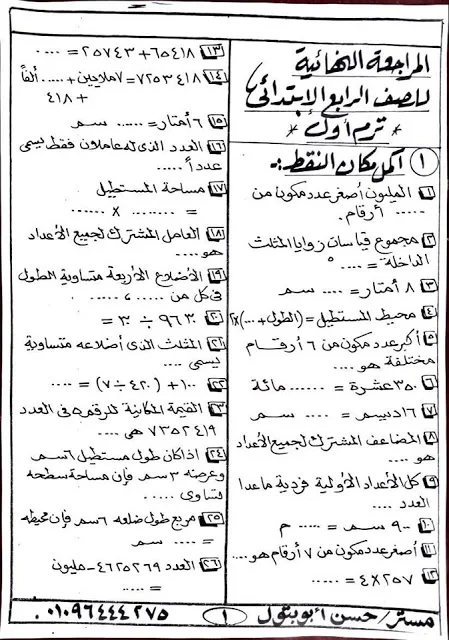 المراجعة النهائية
للصف الرابع الابتدائى
* ترم أول *
١ أكمل مكان النقط :.
١ المليون أصغر عدد مكون من
..... أرقام.
٢ مجموع قياسات زوايا المثلث
الداخلة = .... °
٣ ٨ أمتار = .... سم
٤ محيط المستطيل = (الطول + ...) x٢
٥ أكبر عدد مكون من ٦ أرقام
مختلفة هو ....
٦ ٣٥٠ عشرة = ...... مائة
٧ ١٦ ديسم = .... سم
٨ المضاعف المشترك لجميع الأعداد
هو ....
٩ كل الأعداد الأولية فردية ماعدا
العدد ....
١٠ ٩٠٠ سم = ..... م
١١ أصغر عدد مكون من ٧ أرقام هو ....
١٢ ٢٥٧ x ٤ = .....
١٣ ٦٥٤١٨ + ٢٥٧٤٣ = ....
١٤ ٧٢٥٣٤١٨ = ٧ ملايين + .... ألفاً
+ ٤١٨
١٥ ٦ أمتار = ...... سم
١٦ العدد الذى له عاملان فقط يسمى
عدداً .....
١٧ مساحة المستطيل
= ........ x ......
١٨ العامل المشترك لجميع الأعداد
هو ....
١٩ الأضلاع الأربعة متساوية الطول
فى كل من ..... ، .....
٢٠ ٩٦٣٠ ÷ ٣٠ =
٢١ المثلث الذى أضلاعه متساوية
يسمى ....
٢٢ ١٠٠ + (٤٢٠ ÷ ٧) = ....
٢٣ القيمة المكانية للرقم ٥ فى العدد
٧٣٥٢٤١٩ هى ....
٢٤ اذا كان طول مستطيل ٦ سم
وعرضه ٣ سم فإن مساحة سطحه
تساوى .....
٢٥ مربع طول ضلعه ٦ سم فإن محيطه
= .... سم
٢٦ العدد ٤٦٢٥٢٦٩ - مليون
= ....
مستر/ حسن أبو بتول
١
٠١٠٩٦٤٤٤٢٧٥